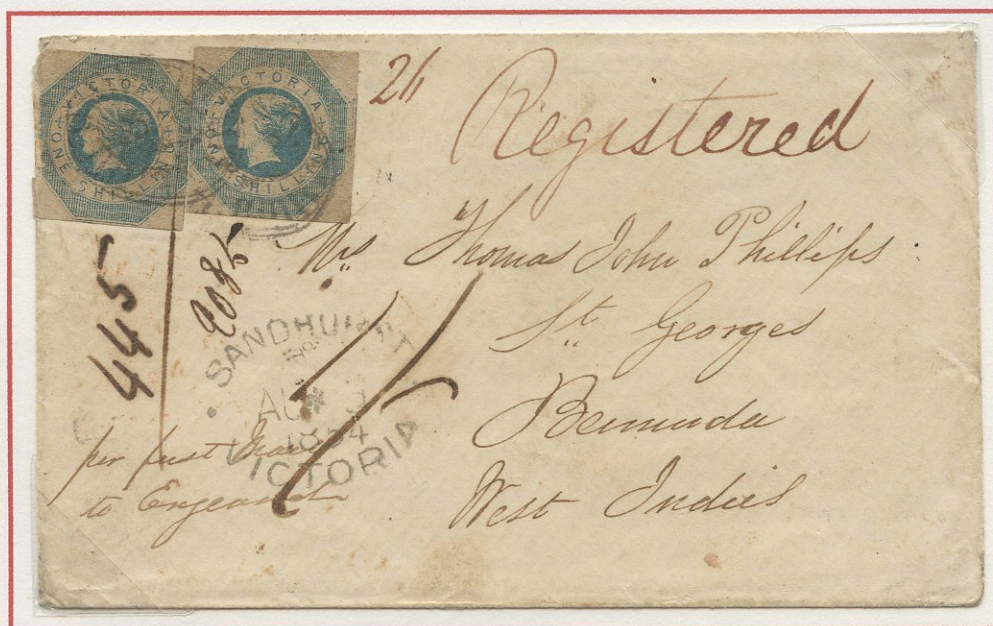 VICTORIA
ONE SHILLING
VICTORIA
ONE SHILLING
2/6
Registered
Mrs Thomas John Phillips
St. Georges
Bermuda
West Indies
445
2085
SANDHURST
AU 3
1854
VICTORIA
1/
per first
to England